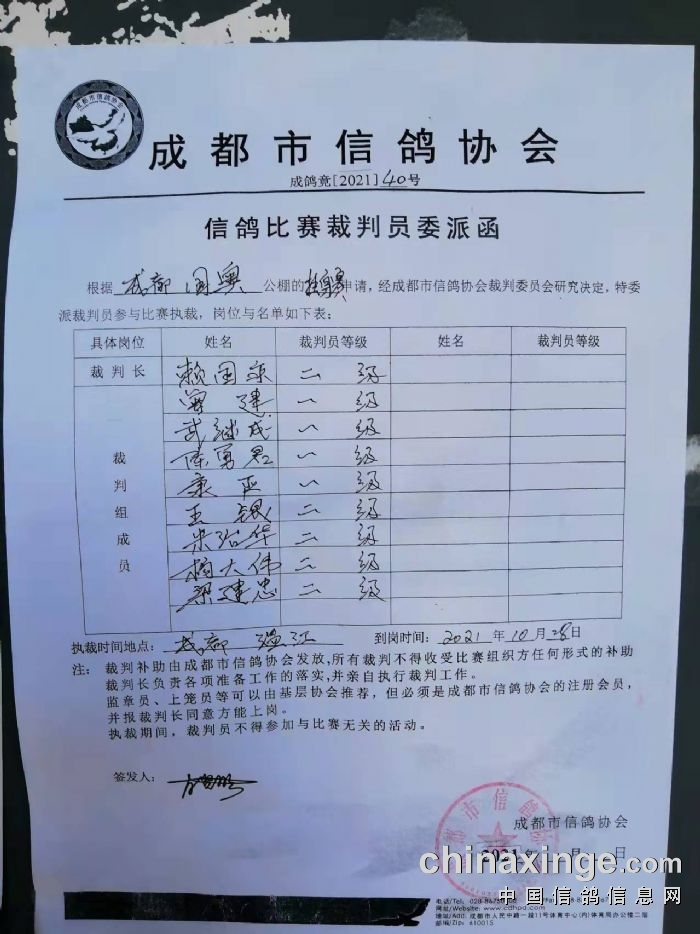 成都市信鸽协会
成都市信鸽协会
成鸽竞[2021]40号
信鸽比赛裁判员委派函
根据 成都 国奥 公棚的 申请，经成都市信鸽协会裁判委员会研究决定，特委
派裁判员参与比赛执裁，岗位与名单如下表：
具体岗位 姓名 裁判员等级 姓名 裁判员等级
裁判长 赖国京 二 级
曾 建 一 级
武继成 一 级
陈勇君 一 级
一 级
王 银 二 级
二 级
杨大伟 二 级
梁建忠 二 级
裁判组成员
执裁时间地点： 成都 温江 到岗时间：2021 年 10 月 28 日
注： 裁判补助由成都市信鸽协会发放，所有裁判不得收受比赛组织方任何形式的补助
裁判长负责各项准备工作的落实，并亲自执行裁判工作。
监章员、上笼员等可以由基层协会推荐，但必须是成都市信鸽协会的注册会员，
并报裁判长同意方能上岗。
执裁期间，裁判员不得参加与比赛无关的活动。
签发人：
成都市信鸽协会
2021 年 月 日
chinaxinge.com
中国信鸽信息网
电话/Tel: 028-8675
网址/Website: www.cdhpa.com
地址/Add: 成都市人民中路一段11号市体育中心(内)体育局办公楼二楼
邮编/Zip: 610015